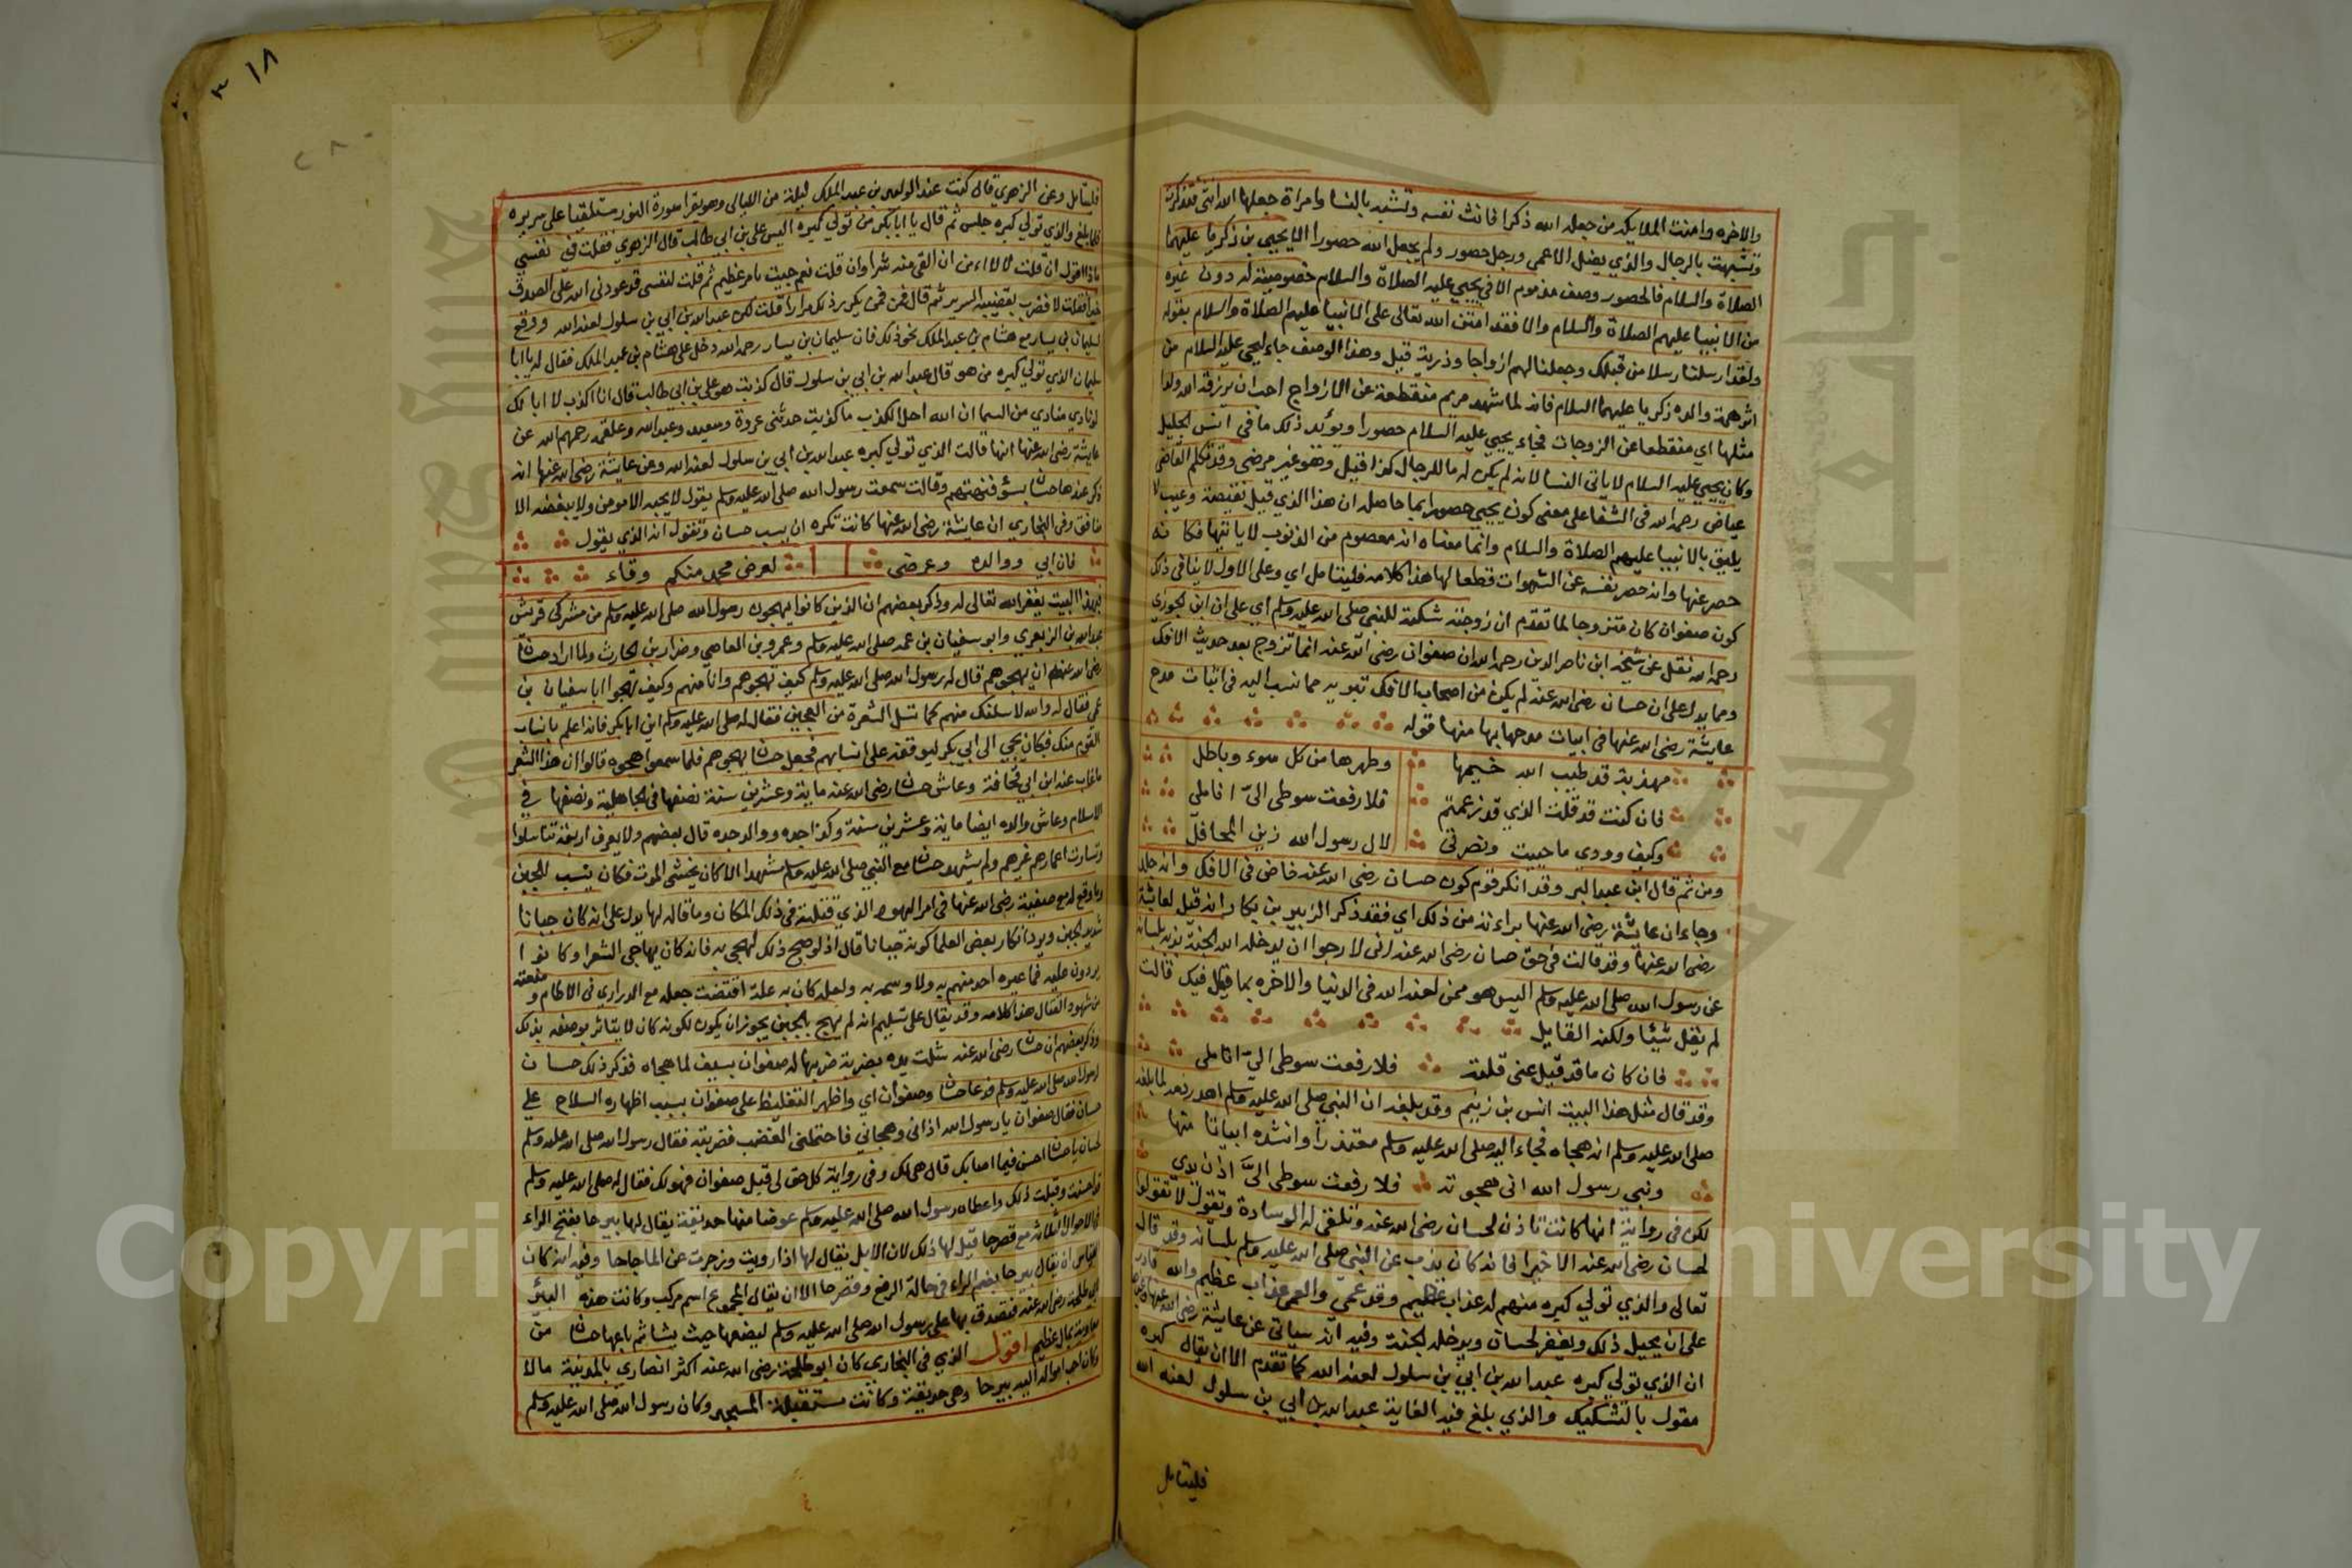 والاخره وامنت الملايكه من جعله الله ذكرا فانث نفسه وتشبه بالنسا وامراة جعلها الله انثى فتذكرت
وتشبهت بالرجال والذي يضل الاعمى ورجل حصور ولم يجعل الله حصورا الا يحيى بن زكريا عليهما
الصلاة والسلام فالحصور وصف مذموم الا في يحيى عليه الصلاة والسلام خصوصية له دون غيره
من الانبيا عليهم الصلاة والسلام والا فقد امتن الله تعالى على الانبيا عليهم الصلاة والسلام بقوله
ولقد ارسلنا رسلا من قبلك وجعلنا لهم ازواجا وذرية قيل وهذا الوصف جاء ليحيى عليه السلام من
اثر همة والده زكريا عليهما السلام فانه لما شهد مريم منقطعة عن الازواج احب ان يرزقه الله ولدا
مثلها اي منقطعا عن الزوجات فجاء يحيى عليه السلام حصورا ويؤيد ذلك ما في انس الجليل
وكان يحيى عليه السلام لا ياتي النسا لانه لم يكن له ما للرجال كذا قيل وهو غير مرضي وقد تكلم القاضي
عياض رحمه الله في الشفا على معنى كون يحيى حصورا بما حاصله ان هذا الذي قيل نقيصة وعيب لا
يليق بالانبيا عليهم الصلاة والسلام وانما معناه انه معصوم من الذنوب لا ياتيها فكانه
حصر عنها وانه حصر نفسه عن الشهوات قطعا لها هذا كلامه فليتامل اي وعلى الاول لا ينافي ذلك
كون صفوان كان متزوجا لما تقدم ان زوجته شكته للنبي صلى الله عليه وسلم اي على ان ابن الجوزي
رحمه الله نقل عن شيخه ابن ناصر الدين رحمه الله ان صفوان رضي الله عنه انما تزوج بعد حديث الافك
ومما يدل على ان حسان رضي الله عنه لم يكن من اصحاب الافك تبريه مما نسب اليه في ابيات مدح
عايشة رضي الله عنها في ابيات مدحها بها منها قوله
مهذبة قد طيب الله خيمها وطهرها من كل سوء وباطل
فان كنت قد قلت الذي قد زعمتم فلا رفعت سوطي الي اناملي
وكيف وودي ما حييت ونصرتي لال رسول الله زين المحافل
ومن ثم قال ابن عبد البر وقد انكر قوم كون حسان رضي الله عنه خاض في الافك وانه جلد
وجاء ان عايشة رضي الله عنها براءته من ذلك اي فقد ذكر الزبير بن بكار انه قيل لعايشة
رضي الله عنها وقد قالت في حق حسان رضي الله عنه اني لارجوا ان يدخله الله الجنة بذبه بلسانه
عن رسول الله صلى الله عليه وسلم اليس هو ممن لعنه الله في الدنيا والاخره بما قيل فيك قالت
لم يقل شيئا ولكنه القايل
فان كان ما قد قيل عني قلته فلا رفعت سوطي الي اناملي
وقد قال مثل هذا البيت انس بن زنيم وقد بلغه ان النبي صلى الله عليه وسلم اهدر دمه لما بلغه
صلى الله عليه وسلم انه هجاه فجاء اليه صلى الله عليه وسلم معتذرا وانشده ابياتا منها
ونبي رسول الله اني هجوته فلا رفعت سوطي الي اذن يدي
لكن في رواية انها كانت تاذن لحسان رضي الله عنه وتلقي له الوسادة وتقول لا تقولوا
لحسان رضي الله عنه الا خيرا فانه كان يذب عن النبي صلى الله عليه وسلم بلسانه وقد قال
تعالى والذي تولى كبره منهم له عذاب عظيم وقد عمي والعمى عذاب عظيم والله قادر
على ان يجعل ذلك ويغفر لحسان ويدخله الجنة وفيه انه سياتي عن عايشة رضي الله عنها
ان الذي تولى كبره عبد الله بن ابي بن سلول لعنه الله كما تقدم الا ان يقال كبره
مقول بالتشكيك والذي بلغ فيه الغاية عبد الله بن ابي بن سلول لعنه الله
فليتامل
٣١٨
فليتامل وعن الزهري قال كنت عند الوليد بن عبد الملك ليلة من الليالي وهو يقرا سورة النور مستلقيا على سريره
فلما بلغ والذي تولى كبره جلس ثم قال يا ابا بكر من تولى كبره اليس علي بن ابي طالب قال الزهري فقلت في نفسي
ماذا اقول ان قلت لا لا امن ان القى منه شرا وان قلت نعم جيت بامر عظيم ثم قلت لنفسي قد عودني الله على الصدق
خيرا فقلت لا فضرب بقضيبه السرير ثم قال فمن فمن يكرر ذلك مرارا قلت لكن عبد الله بن ابي بن سلول لعنه الله ووقع
لسليمان بن يسار مع هشام بن عبد الملك نحو ذلك فان سليمان بن يسار رحمه الله دخل على هشام بن عبد الملك فقال له يا ابا
سليمان الذي تولى كبره من هو قال عبد الله بن ابي بن سلول قال كذبت هو علي بن ابي طالب قال انا اكذب لا ابا لك
لو نادى منادي من السما ان الله احل الكذب ما كذبت حدثني عروة وسعيد وعبد الله وعلقمه رحمهم الله عن
عايشة رضي الله عنها انها قالت الذي تولى كبره عبد الله بن ابي بن سلول لعنه الله وعن عايشة رضي الله عنها انه
ذكر عندها حسان بسؤ فنهتهم وقالت سمعت رسول الله صلى الله عليه وسلم يقول لا يحبه الا مومن ولا يبغضه الا
منافق وفي البخاري ان عايشة رضي الله عنها كانت تكره ان يسب حسان وتقول انه الذي يقول
فان ابي ووالده وعرضي لعرض محمد منكم وقاء
فبهذا البيت يغفر الله تعالى له وذكر بعضهم ان الذين كانوا يهجون رسول الله صلى الله عليه وسلم من مشركي قريش
عبد الله بن الزبعري وابو سفيان بن عمه صلى الله عليه وسلم وعمرو بن العاصي وضرار بن الحارث ولما اراد حسان
رضي الله عنه ان يهجوهم قال له رسول الله صلى الله عليه وسلم كيف تهجوهم وانا منهم وكيف تهجوا ابا سفيان بن
عمي فقال له والله لاسلنك منهم كما تسل الشعرة من العجين فقال له صلى الله عليه وسلم ايت ابا بكر فانه اعلم بانساب
القوم منك فكان يجي الى ابي بكر ليوقفه على انسابهم فجعل حسان يهجوهم فلما سمعوا هجوه قالوا ان هذا الشعر
ما غاب عنه ابن ابي قحافة وعاش حسان رضي الله عنه ماية وعشرين سنة نصفها في الجاهلية ونصفها في
الاسلام وعاش والده ايضا ماية وعشرين سنة وكذا جده ووالد جده قال بعضهم ولا يعرف اربعة تناسلوا
وتساوت اعمارهم غيرهم ولم يشهد حسان مع النبي صلى الله عليه وسلم مشهدا لانه كان يخشى الموت فكان ينسب للجبن
وما وقع له مع صفية رضي الله عنها في امر اليهودي الذي قتلته في ذلك المكان وما قاله لها يدل على انه كان جبانا
شديد الجبن ويرد انكار بعض العلما كونه جبانا قال اذ لو صح ذلك لهجي به فانه كان يهاجي الشعرا وكانوا
يردون عليه فما عيره احد منهم به ولا وسمه به ولعله كان به علة اقتضت جعله مع الذراري في الاطام ومنعته
من شهود القتال هذا كلامه وقد يقال على تسليم انه لم يهج بالجبن يجوز ان يكون لكونه كان لا يتاثر بوصفه بذلك
وذكر بعضهم ان حسان رضي الله عنه شلت يده بضربة ضربها له صفوان بسيف لما هجاه فذكر ذلك حسان
لرسول الله صلى الله عليه وسلم فدعا حسان وصفوان اي واظهر التغليظ على صفوان بسبب اظهاره السلاح على
حسان فقال صفوان يا رسول الله اذاني وهجاني فاحتملني الغضب فضربته فقال رسول الله صلى الله عليه وسلم
لحسان يا حسان احسن فيما اصابك قال هي لك وفي رواية كل حق لي قبل صفوان فهو لك فقال له صلى الله عليه وسلم
قد احسنت وقبلت ذلك واعطاه رسول الله صلى الله عليه وسلم عوضا منها حديقة يقال لها بيرحا بفتح الراء
في الاحوال الثلاثة مع قصرحا قيل لها ذلك لان الابل يقال لها اذا رويت وزجرت عن الما حاحا وفيه انه كان
القياس ان يقال بيرحا بضم الراء في حالة الرفع وقصر حا الا ان يقال المجموع اسم مركب وكانت هذه البئر
لابي طلحة رضي الله عنه فتصدق بها على رسول الله صلى الله عليه وسلم ليضعها حيث يشا ثم باعها حسان من
معاوية بمال عظيم اقول الذي في البخاري كان ابو طلحة رضي الله عنه اكثر انصاري بالمدينة مالا
وكان احب امواله اليه بيرحا وهي حديقة وكانت مستقبلة المسجد وكان رسول الله صلى الله عليه وسلم
Copyright © King Saud University